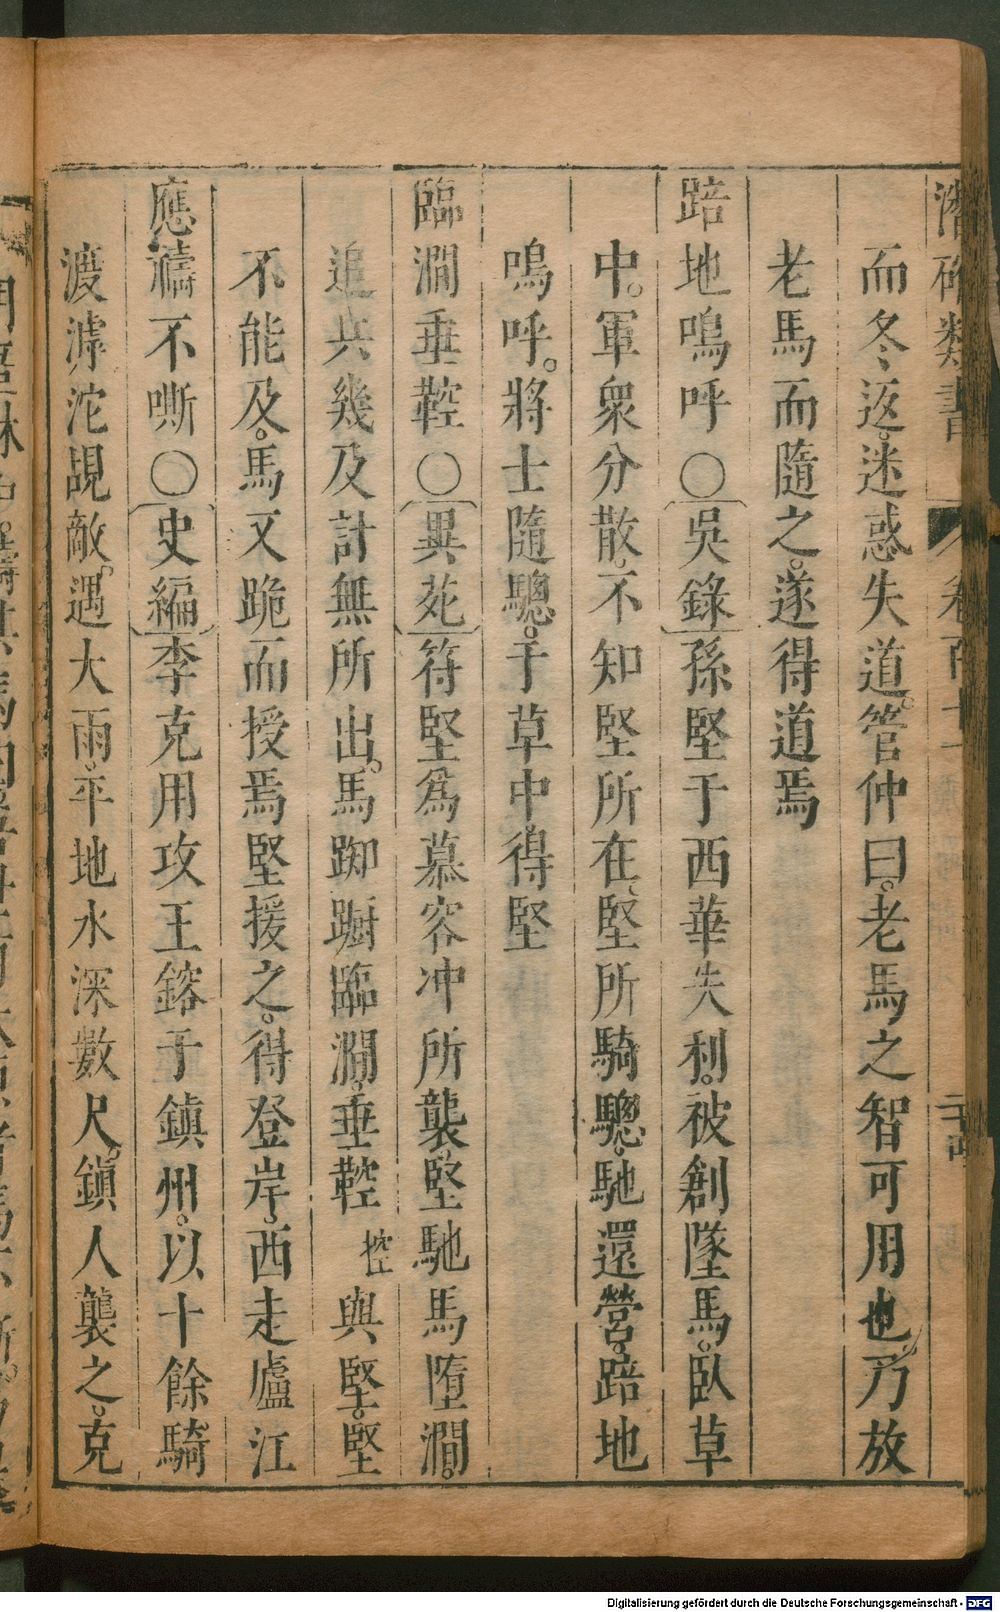 潛確類書 卷百十一 二十四
而冬返。迷惑失道。管仲曰。老馬之智可用也。乃放
老馬而隨之。遂得道焉
踣地鳴呼〇吳錄孫堅于西華失利。被創墜馬。臥草
中。軍衆分散。不知堅所在、堅所騎驄。馳還營。踣地
鳴呼。將士隨驄。于草中得堅
臨澗垂鞚〇異苑符堅爲慕容冲所襲。堅馳馬墮澗。
追兵幾及計無所出。馬踟蹰臨澗。垂鞚控與堅。堅
不能及。馬又跪而授焉堅援之。得登岸。西走廬江
應禱不嘶〇史編李克用攻王鎔于鎮州。以十餘騎
渡滹沱覘敵。遇大雨。平地水深數尺。鎮人襲之。克
Digitalisierung gefördert durch die Deutsche Forschungsgemeinschaft - DFG